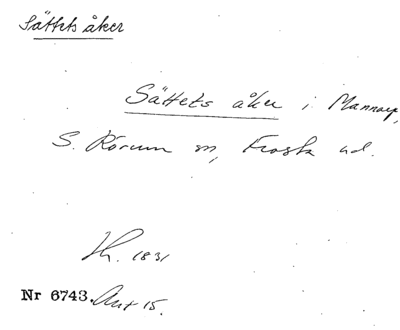 Sättets åker
Sättets åker i Mannarp,
S. Rörum sn, Frosta hd.
1831
Nr 6743. Ant 15.